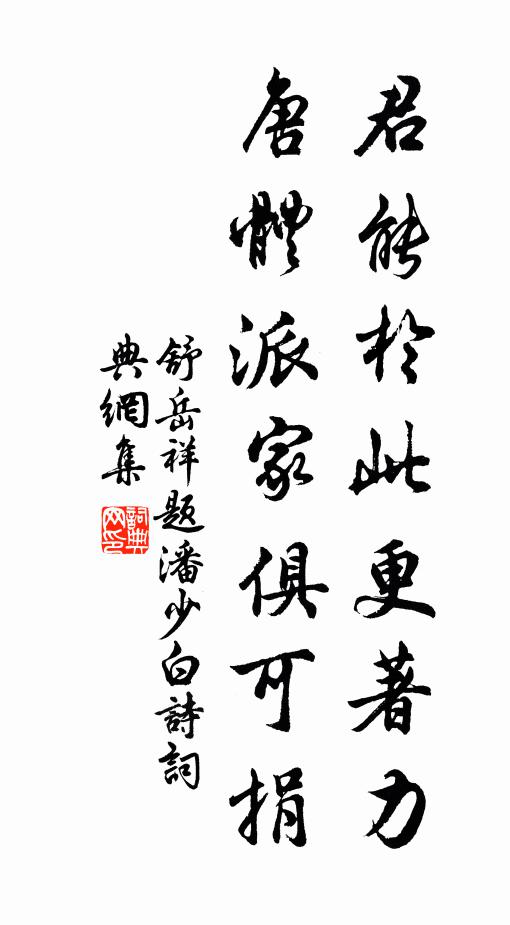 君能於此更著力
唐體派家俱可捐
舒岳祥題潘少白詩詞
典網集
詞典網印